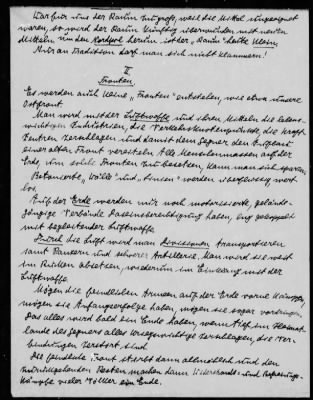 War für uns der Raum zu groß, weil die Mittel ungeeignet
waren, so werd der Raum künftig überwunden mit neuen
Mitteln um den Erdball herum ist der „Raum" heute klein.
Nur an Tradition darf man sich nicht klammern!
II
Fronten.
Es werden auch keine „Fronten" entstehen, wie etwa unsere
Ostfront.
Man wird mit der Luftwaffe und ihren Mitteln die lebens-
wichtigen Industrien, die Verkehrsknotenpunkte, die Kraft-
zentren zerschlagen und damit dem Gegner den Aufbau
einer alten Front vereiteln. Alle Menschenmassen auf der
Erde, um solche Fronten zu besetzen, kann man sich sparen.
Betonierte „Wälle" und „Linien" werden überflüssig wert-
los.
Auf der Erde werden nur noch motorisierte, gelände-
gängige Verbände Daseinsberechtigung haben, eng gekoppelt
mit begleitender Luftwaffe.
Durch die Luft werd man Divisionen transportieren
samt Panzern und schwerer Artillerie. Man wird sie weit
im Rücken absetzen, wiederum im Einklang mit der
Luftwaffe.
Mögen die feindlichen Armeen auf der Erde vorne kämpfen,
mögen sie Anfangserfolge haben, mögen sie sogar vordringen.
Das alles wird bald ein Ende haben, wenn tief im Heimat-
lande des Gegners alles Kriegswichtige zerschlagen, die Ver-
bindungen zerstört sind.
Die feindliche Front stirbt dann allmählich und den
zurückgehenden Resten machen dann Widerstands- und
kämpfe vieler Völker ein Ende.